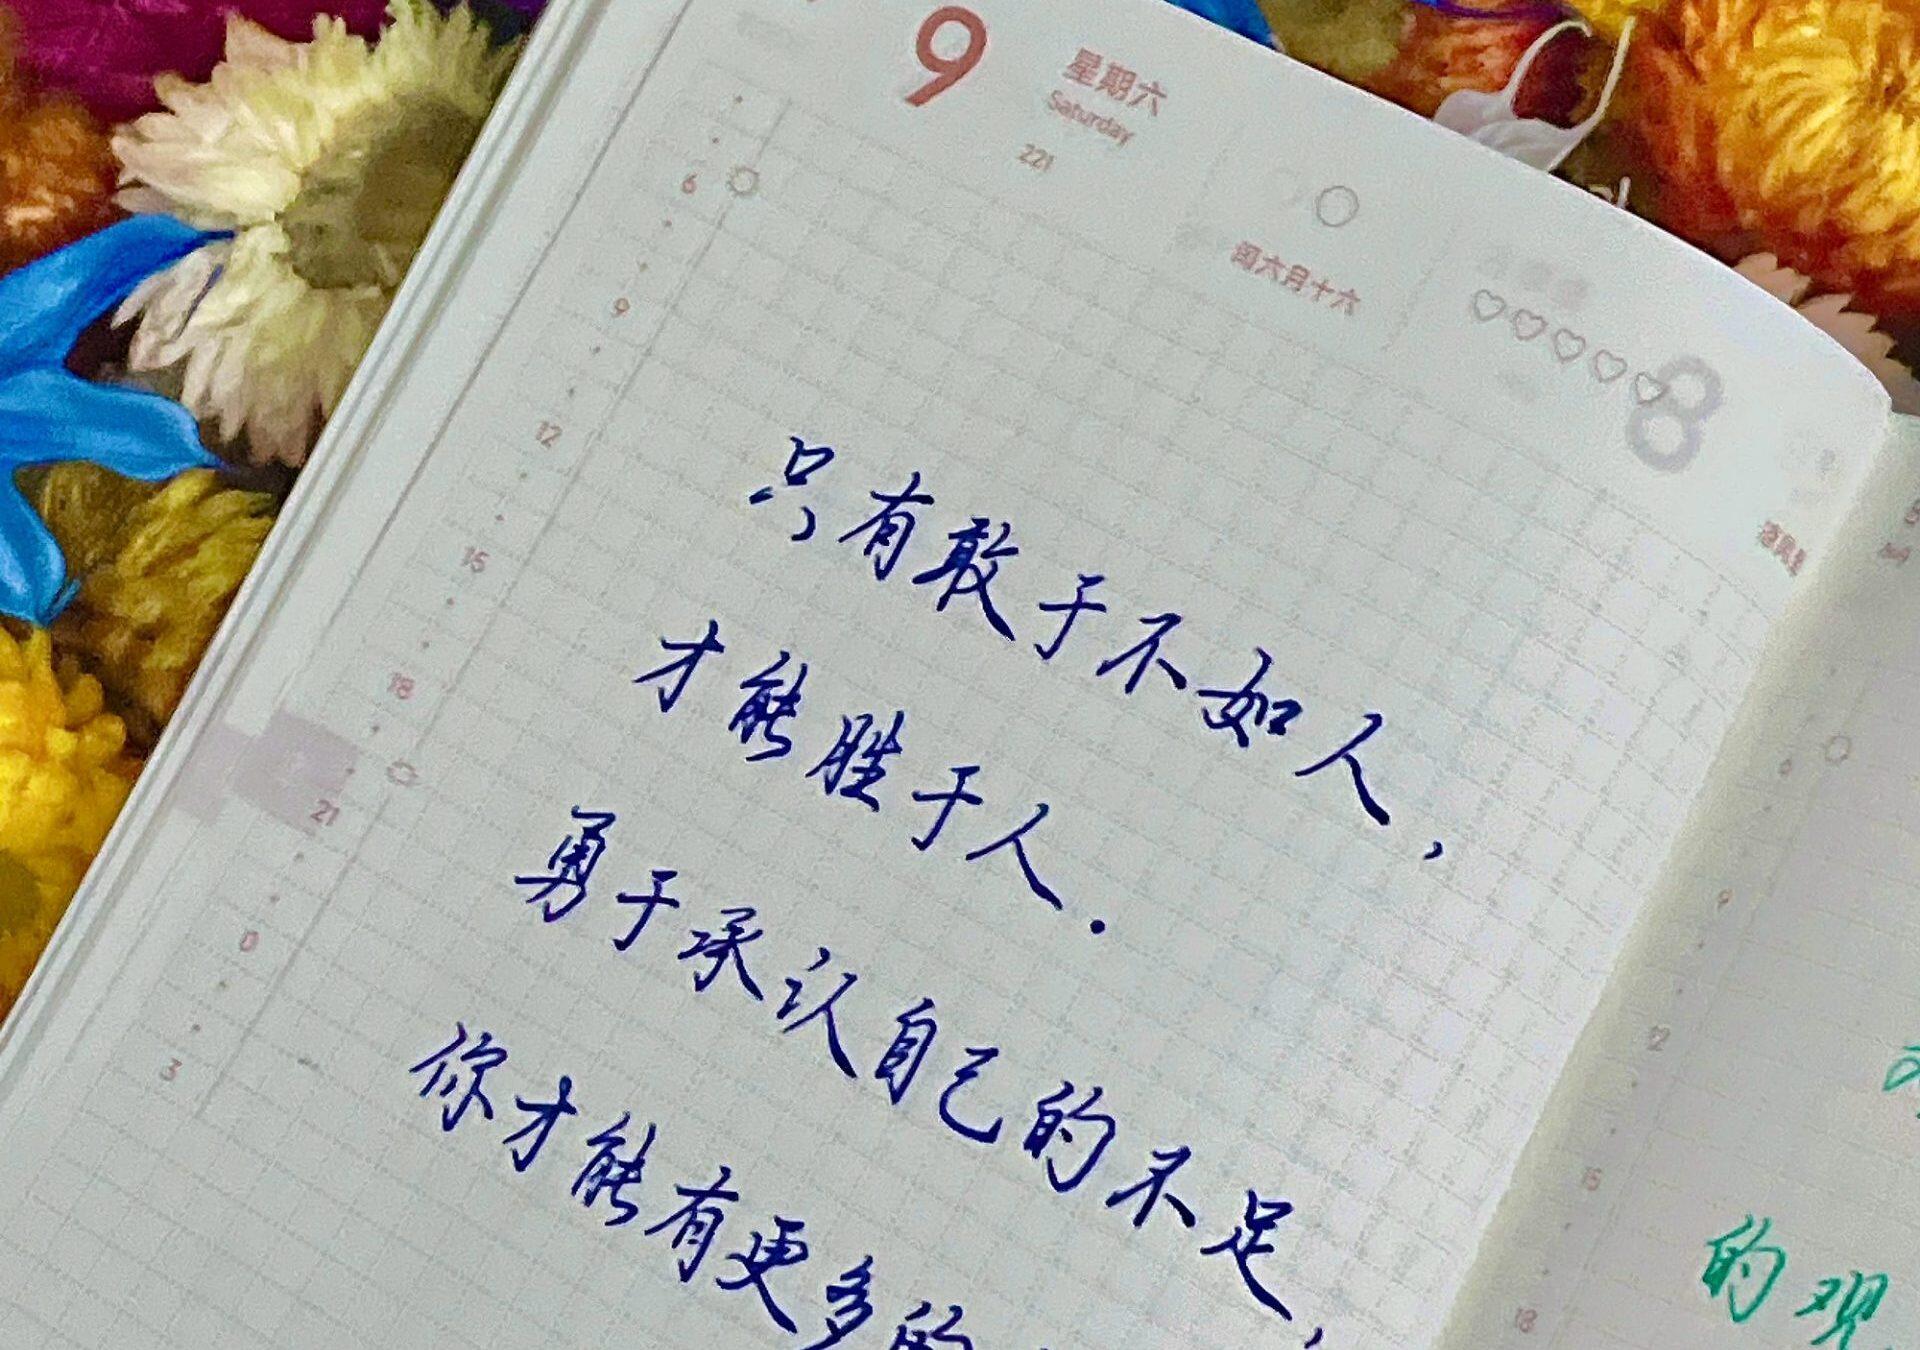 9
星期六
Saturday
221
闰六月十六
8
6
9
12
15
18
21
0
3
只有敢于不如人，
才能胜于人.
勇于承认自己的不足，
你才能有更多的
9
12
15
18
的观